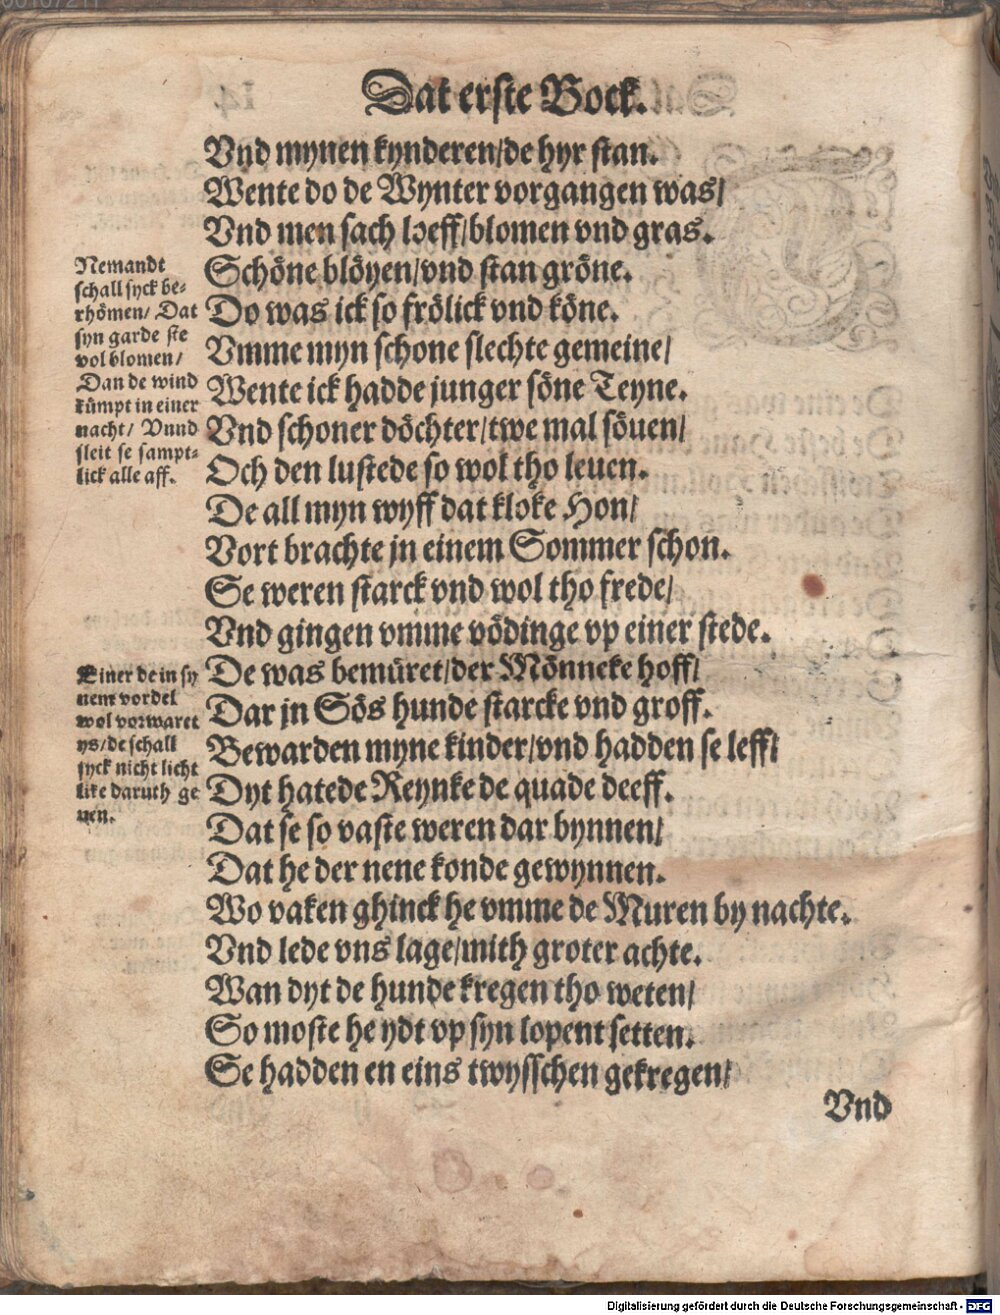 Dat erste Bock.
Vnd mynen kynderen/de hyr stan.
Wente do de Wynter vorgangen was/
Vnd men sach loeff/blomen vnd gras.
Schöne blöyen/vnd stan gröne.
Do was ick so frölick vnd köne.
Vmme myn schone slechte gemeine/
Wente ick hadde junger söne Teyne.
Vnd schoner döchter/twe mal söuen/
Och den lustede so wol tho leuen.
De all myn wyff dat kloke Hon/
Vort brachte in einem Sommer schon.
Se weren starck vnd wol tho frede/
Vnd gingen vmme vödinge vp einer stede.
De was bemüret/der Mönneke hoff/
Dar jn Sös hunde starcke vnd groff.
Bewarden myne kinder/vnd hadden se leff/
Dyt hatede Reynke de quade deeff.
Dat se so vaste weren dar bynnen/
Dat he der nene konde gewynnen.
Wo vaken ghinck he vmme de Muren by nachte.
Vnd lede vns lage/mith groter achte.
Wan dyt de hunde kregen tho weten/
So moste he ydt vp syn lopent setten.
Se hadden en eins twysschen gekregen/
Vnd
Nemandt
schall syck be-
rhömen/ Dat
syn garde ste
vol blomen/
Dan de wind
kümpt in einer
nacht/ Vnnd
sleit se sampt-
lick alle aff.
Einer de in sy
nem vordel
wol vorwaret
ys/de schall
syck nicht licht
like daruth ge
uen.
Digitalisierung gefördert durch die Deutsche Forschungsgemeinschaft - DFG